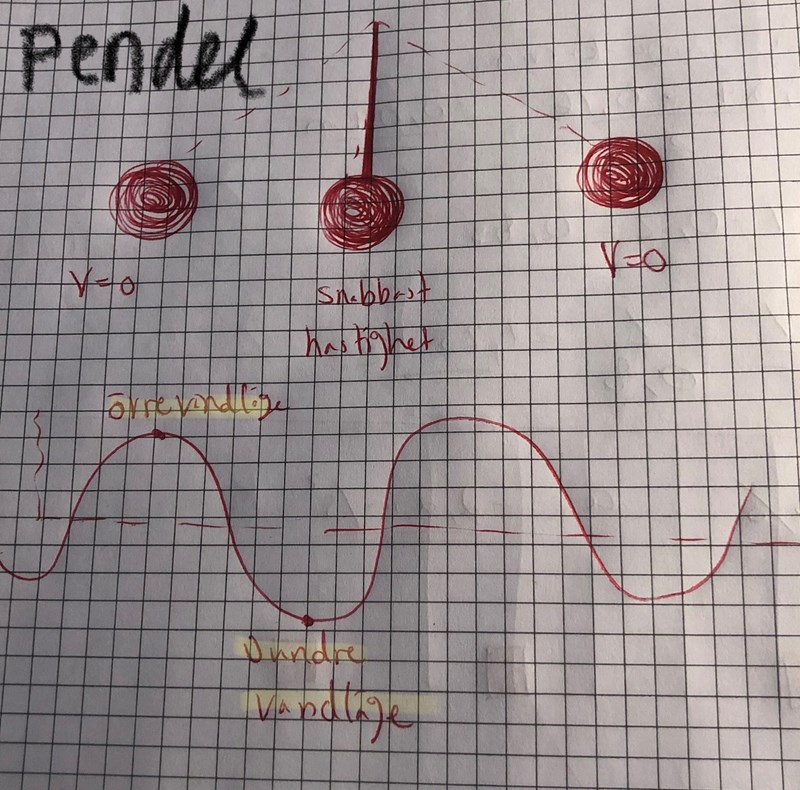 Pendel
V=0
snabbast
hastighet
V=0
övrevändläge
Undre
Vändläge